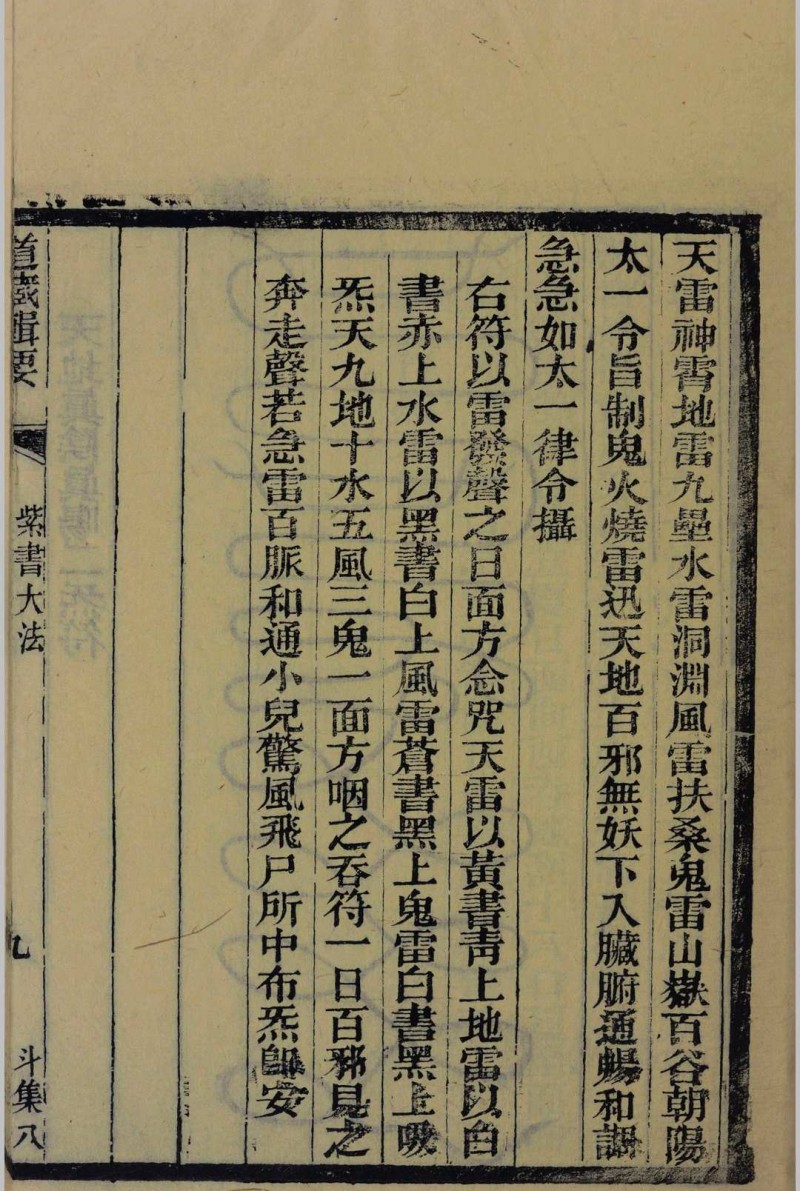 天雷神霄地雷九壘水雷洞淵風雷扶桑鬼雷山嶽百谷朝陽
太一令旨制鬼火燒雷迅天地百邪無妖下入臟腑通暢和調
急急如太一律令攝
右符以雷發聲之日面方念咒天雷以黃書青上地雷以白
書赤上水雷以黑書白上風雷蒼書黑上鬼雷白書黑上吸
炁天九地十水五風三鬼一面方咽之吞符一日百邪見之
奔走聲若急雷百脈和通小兒驚風飛尸所中布炁歸安
道藏輯要
紫書大法
九
斗集八